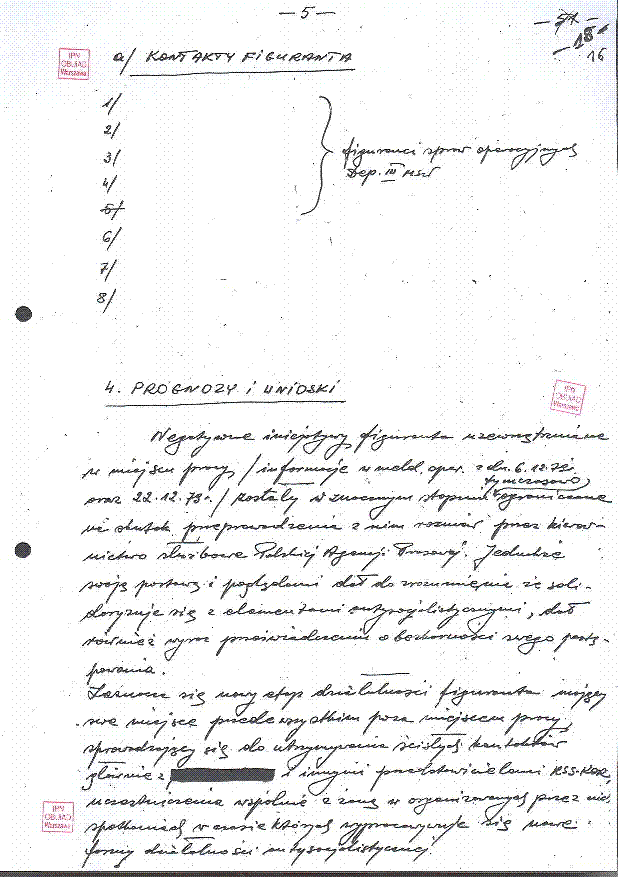 — 5 —
— 51 —
— 18
16
IPN
OBUiAD
Warszawa
a/ KONTAKTY FIGURANTA
1/
2/
3/
4/
5/
6/
7/
8/
figuranci spraw operacyjnych
Dep. III MSW
4. PROGNOZY i WNIOSKI
IPN
OBUiAD
Warszawa
Negatywne inicjatywy figuranta uzewnętrzniane
w miejscu pracy /informacje w meld. oper. z dn. 6.12.79r.
tymczasowo
oraz 22.12.79r./ zostały w znacznym stopniu ograniczone
na skutek przeprowadzenia z nim rozmów przez kierow-
nictwo służbowe Polskiej Agencji Prasowej. Jednakże
swoją postawą i poglądami dał do zrozumienia że soli-
daryzuje się z elementami antysocjalistycznymi, dał
również wyraz przeświadczeniu o bezkarności swego postę-
powania.
Zaznacza się nowy etap działalności figuranta mający
swe miejsce przede wszystkim poza miejscem pracy,
sprowadzający się do utrzymywania ścisłych kontaktów
głównie z i innymi przedstawicielami KSS-KOR,
uczestniczenia wspólnie z żoną w organizowanych przez nich
spotkaniach w czasie których wypracowuje się nowe
formy działalności antysocjalistycznej.
IPN
OBUiAD
Warszawa